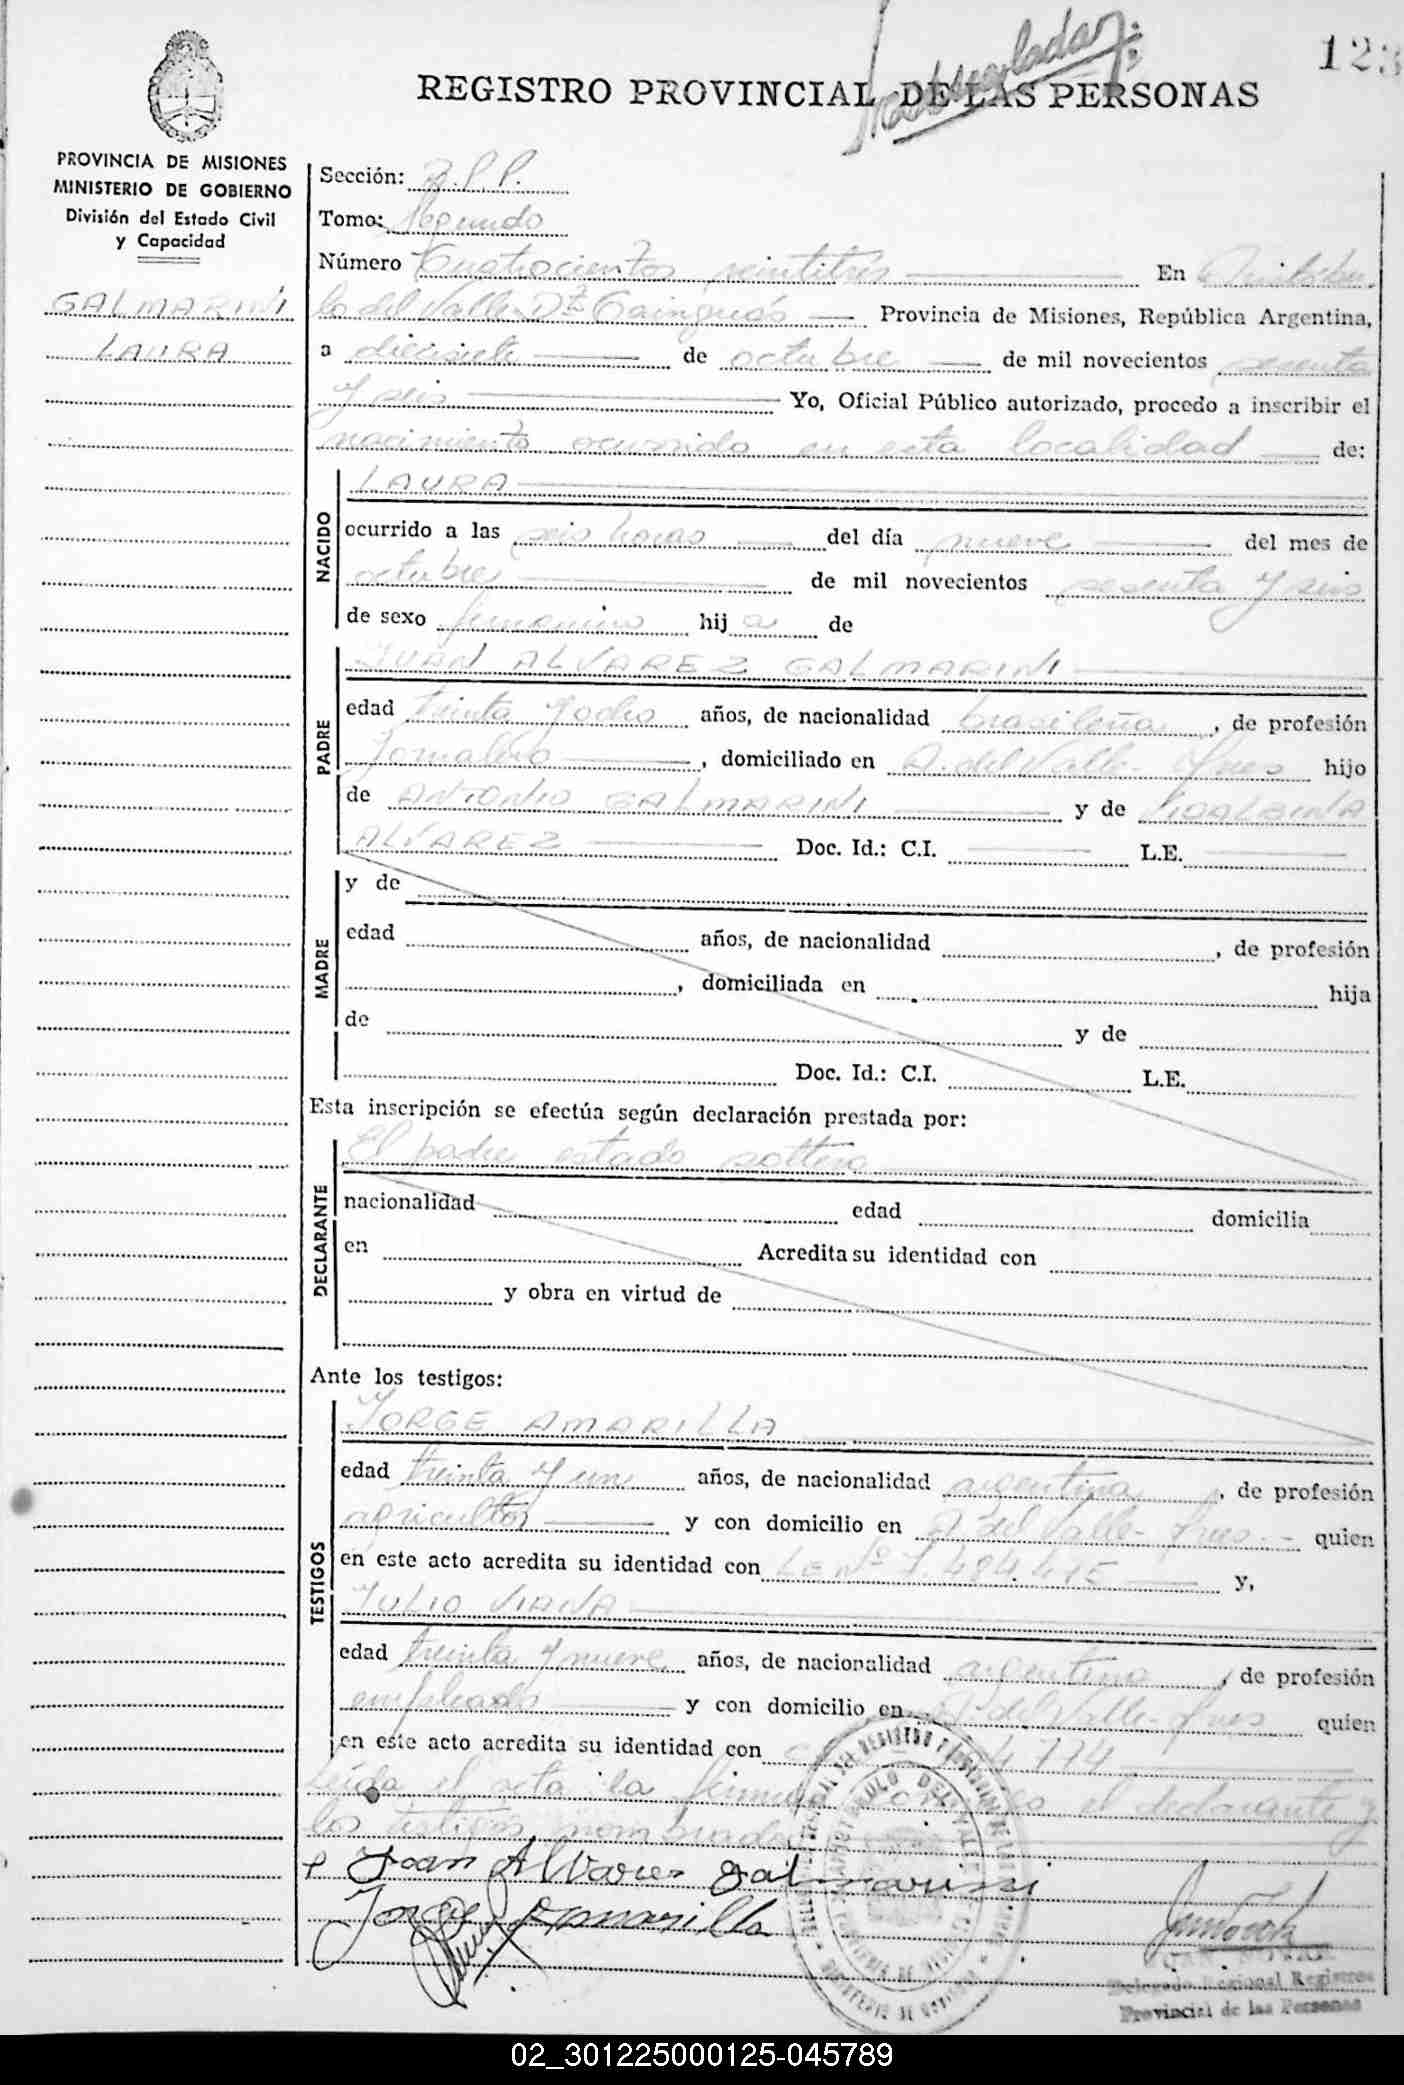 123
REGISTRO PROVINCIAL DE LAS PERSONAS
PROVINCIA DE MISIONES
MINISTERIO DE GOBIERNO
División del Estado Civil
y Capacidad
GALMARINI
LAURA
Sección:
Tomo: Segundo
Número Cuatrocientos veintitrés En Aristóbu
lo del Valle Dto Cainguás Provincia de Misiones, República Argentina,
a diecisiete de octubre de mil novecientos sesenta
y seis Yo, Oficial Público autorizado, procedo a inscribir el
nacimiento ocurrido en esta localidad de:
NACIDO
LAURA
ocurrido a las seis horas del día nueve del mes de
octubre de mil novecientos sesenta y seis
de sexo femenino hij a de
PADRE
JUAN ALVAREZ GALMARINI
edad treinta y ocho años, de nacionalidad brasileña, de profesión
Jornalero, domiciliado en A. del Valle- Mnes hijo
de ANTONIO GALMARINI y de
ALVAREZ Doc. Id.: C.I. L.E.
MADRE
y de
edad años, de nacionalidad , de profesión
, domiciliada en hija
de y de
Doc. Id.: C.I. L.E.
Esta inscripción se efectúa según declaración prestada por:
DECLARANTE
El padre estado soltero
nacionalidad edad domicilia
en Acredita su identidad con
y obra en virtud de
Ante los testigos:
TESTIGOS
JORGE AMARILLA
edad treinta y un años, de nacionalidad argentina, de profesión
agricultor y con domicilio en A. del Valle- Mnes.- quien
en este acto acredita su identidad con LE Nº 7.484.415 y,
JULIO VIANA
edad treinta y nueve años, de nacionalidad argentina, de profesión
empleado y con domicilio en A. del Valle- Mnes quien
en este acto acredita su identidad con
Leída el acta la firman el declarante y
los testigos nombrados
Juan Alvares Galmarini
Jorge Amarilla
Delegado Regional Registro
Provincial de las Personas
02_301225000125-045789